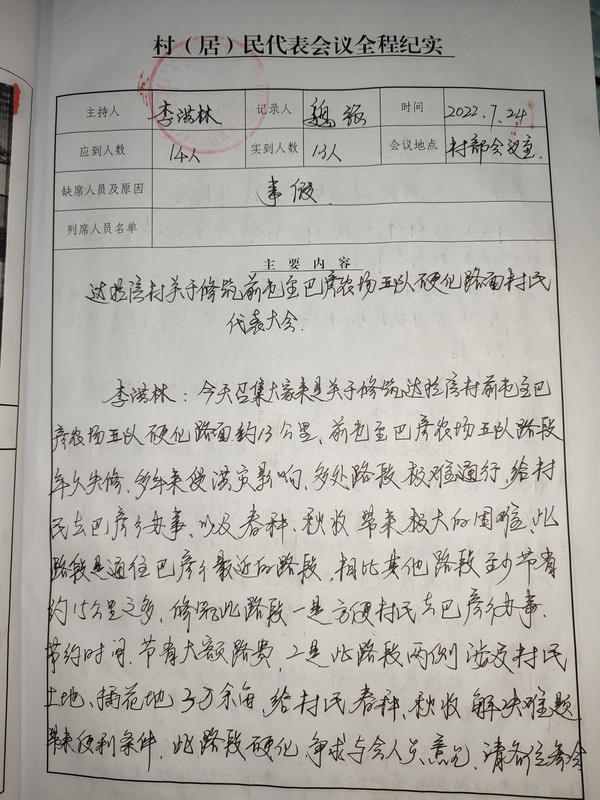 村（居）民代表会议全程纪实
主持人 李洪林 记录人 魏 时间 2022.7.24
应到人数 14人 实到人数 13人 会议地点 村部会议室.
缺席人员及原因 事假.
列席人员名单
主要内容
村关于修筑前屯至巴彦农场五队硬化路面村民
代表大会.
李洪林：今天召集大家来是关于修筑达村前屯至巴
彦农场五队硬化路面约13公里、前屯至巴彦农场五队路段
年久失修.多年来受洪灾影响.多处路段极难通行.给村
民去巴彦乡办事.以及春种、秋收带来极大的困难.此
路段是通往巴彦乡最近的路段.相比其他路段至少节省
约15公里之多.修此路段一是方便村民去巴彦乡办事.
节约时间.节省大额路费.二是此路段两侧涉及村民
土地、地3万余亩.给村民春种、秋收解决难题
带来便利条件.此路段硬化.争求与会人员意见.请各位参会